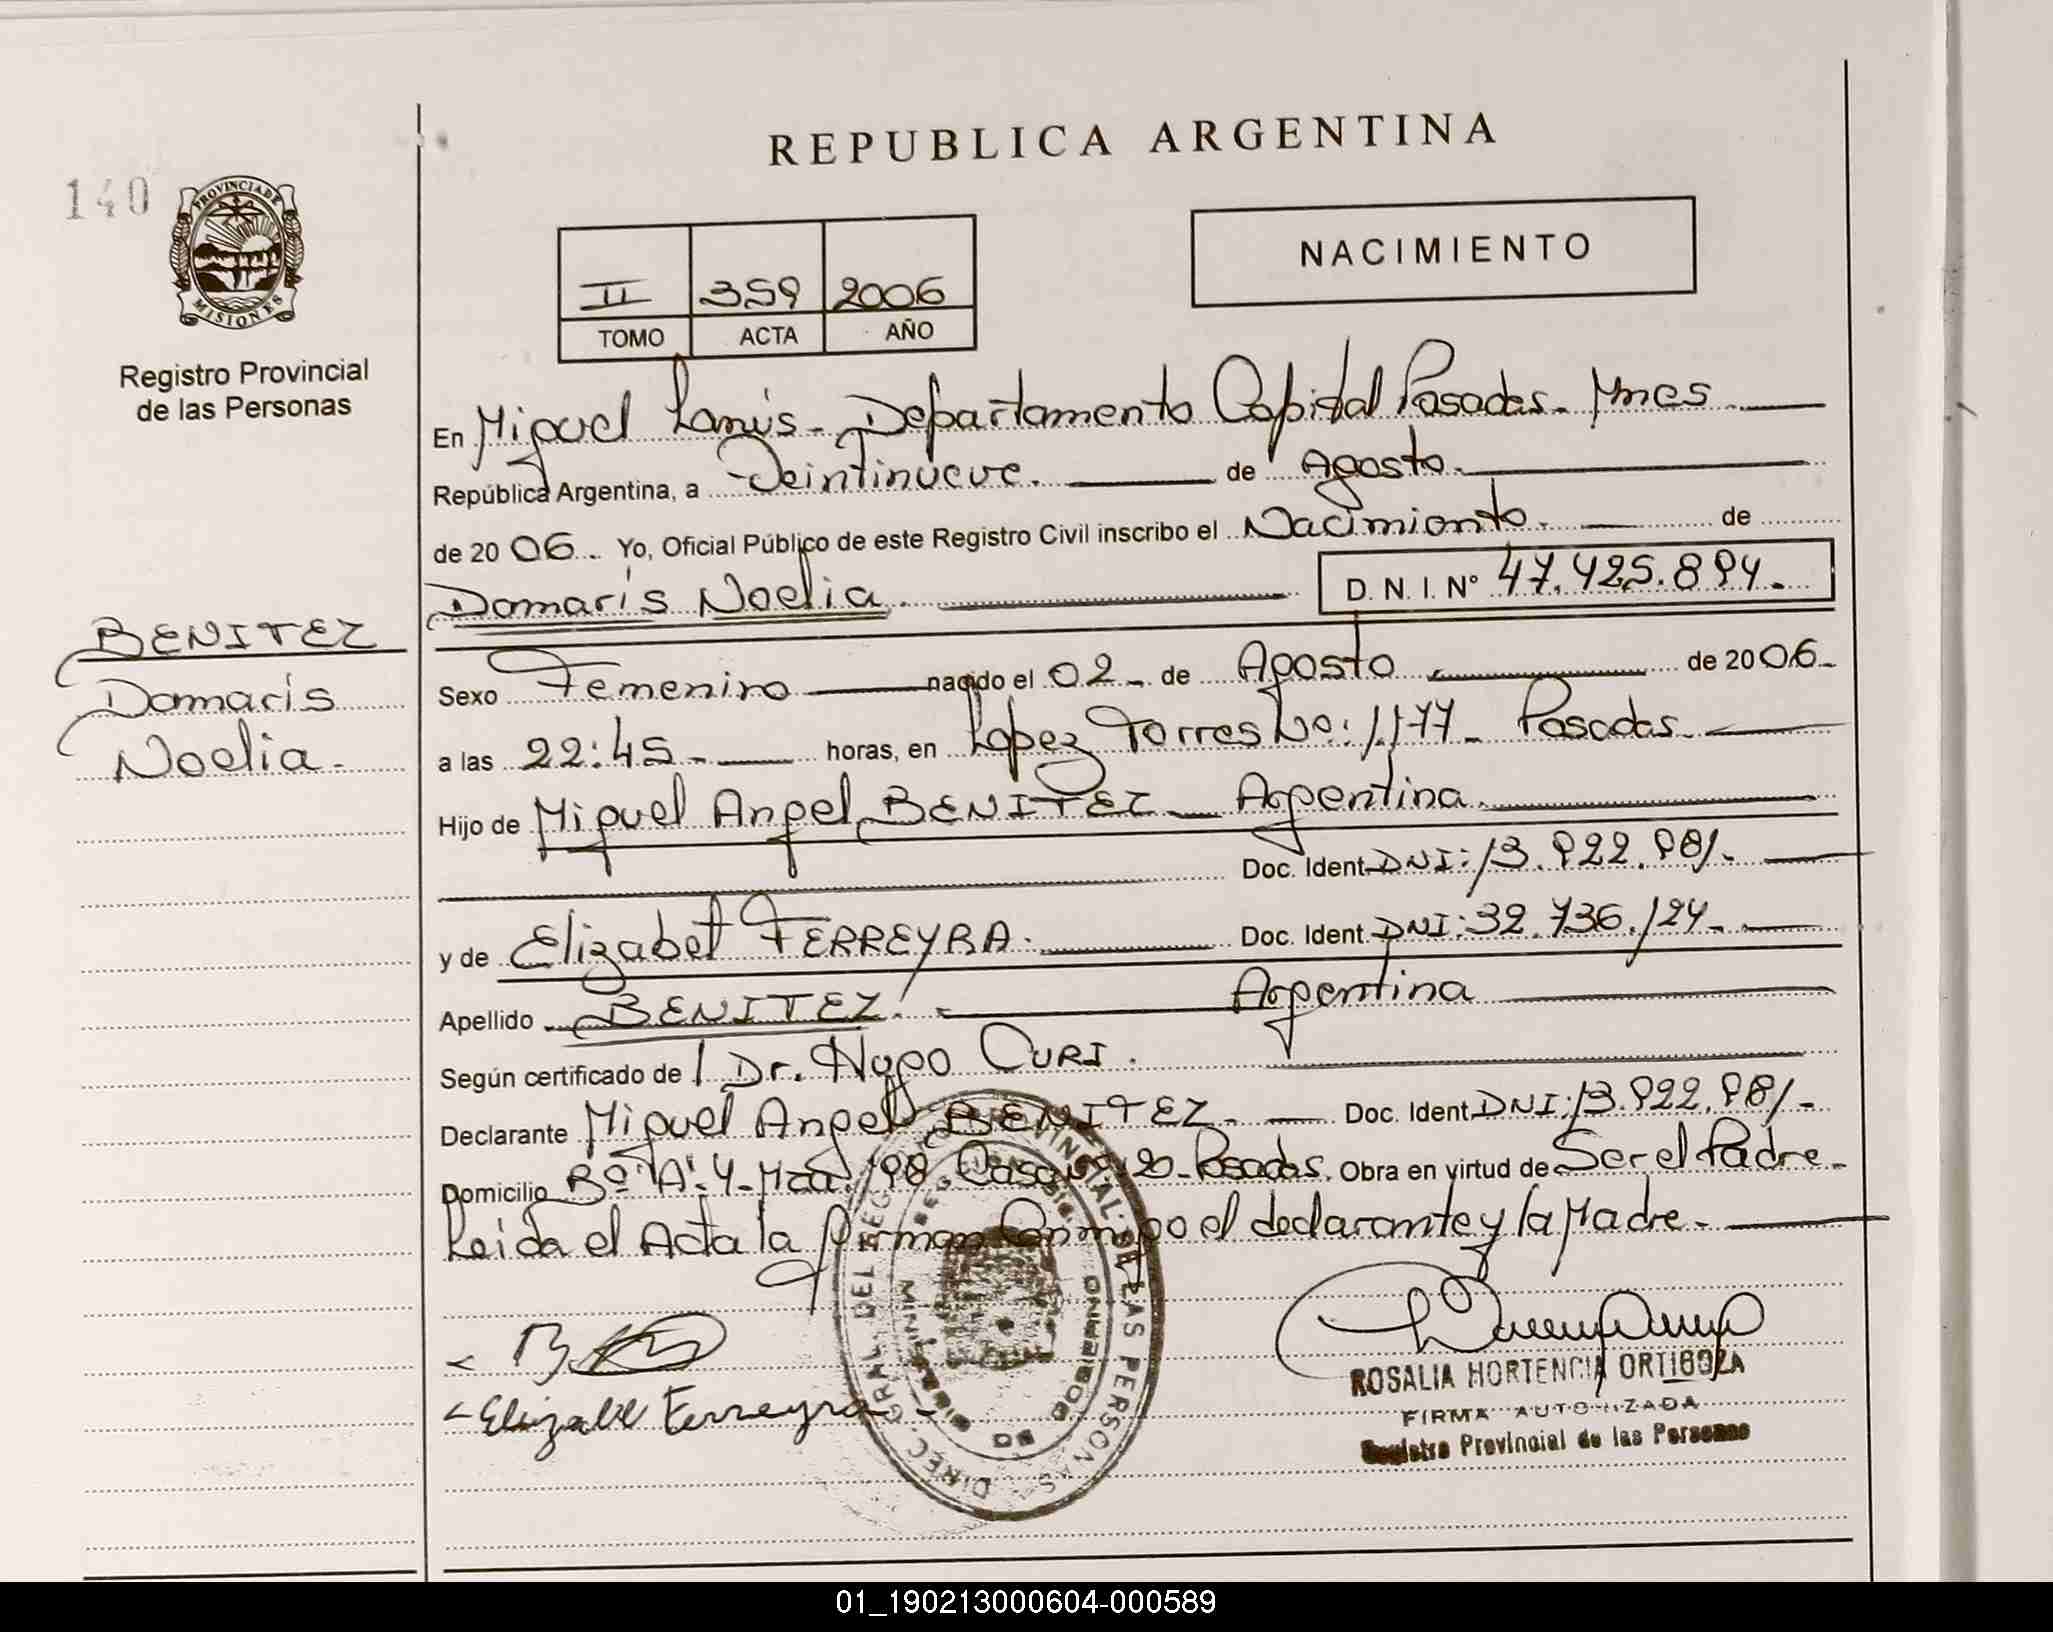 REPUBLICA ARGENTINA
140
PROVINCIA DE
MISIONES
Registro Provincial
de las Personas
NACIMIENTO
II 359 2006
TOMO ACTA AÑO
En Miguel Lanús - Departamento Capital Posadas - Mnes
República Argentina, a Veintinueve. de Agosto.
de 20 06 - Yo, Oficial Público de este Registro Civil inscribo el Nacimiento. de
Damaris Noelia. D. N. I. N° 47.425.894.
BENITEZ
Damaris
Noelia.
Sexo Femenino nacido el 02 - de Agosto de 20 06 -
a las 22:45 - horas, en Lopez Torres No: 1177 - Posadas.
Hijo de Miguel Angel BENITEZ - Argentina.
Doc. Ident. DNI: 13.922.981.
y de Elizabet FERREYRA. Doc. Ident. DNI: 32.736.124.
Apellido BENITEZ. Argentina
Según certificado de Dr. Hugo CURI.
Declarante Miguel Angel BENITEZ. Doc. Ident. DNI: 13.922.981 -
Domicilio Bº A. 4 - 198 Casa 20 - Posadas. Obra en virtud de Ser el Padre -
Leida el Acta la firman Conmigo el declarante y la Madre.
Elizabet Ferreyra
DIREC. GRAL. DEL REG. PROVINCIAL DE LAS PERSONAS
ROSALIA HORTENCIA ORTIGOZA
FIRMA AUTORIZADA
Registro Provincial de las Personas
01_190213000604-000589